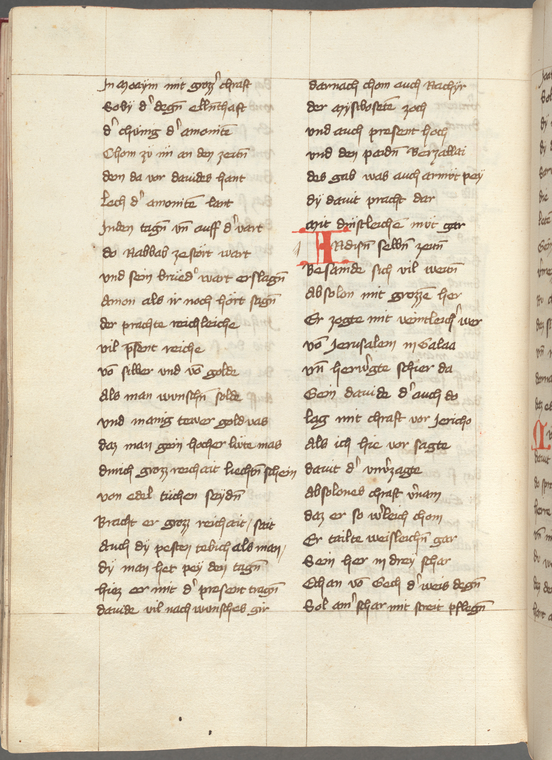 In moaym mit grozz' chrafft
Soby d' degn ellnthaft
d' chünig d' amonite
Chom zü im an den zeitn
den da vor dauides hant
lech d' amonite lant
In den tagn vn auff d' vart
do Rabbas zestört wart
vnd sein brued' wart erslagn
Amon als ir noch hört sagn
der prachte reichleiche
vil psent reiche
vo silber vnd vo golde
Als man wunschn solde
vnd manig tewer goldvas
daz man gein hocher lüte mas
durich grozz reichait liechn schein
von edel tüchen seydn
Bracht er grozz reichait / seit
Auch dy pesten tebich als man /
dy man het pey den tagn
hiez er mit d' present tragn
dauide vil nach wunsches gir
darnach chom auch Nachyr
der mysbosete zoch
vnd auch present hoch
vnd den pardn Berzallai
des gab was auch armüt pey
dy dauit pracht dar
mit dinstleiche müt gar
IN disn selbn zeitn
Besamde sich vil weitn
Absolon mit grozze her
Er zogte mit veintleich' wer
vo Jerusalem in Galaa
vn herwgte schier da
Gein dauide d' auch do
lag mit chrafft vor Jericho
Als ich hie vor sagte
dauit d' vnv'zagte
Absolones chraft v'nam
daz er so w'leich chom
Er tailte weisleichn gar
Sein her in drey schar
Ethan vo Gech d' weis degn
Sol ain' schar mit streit pflegn